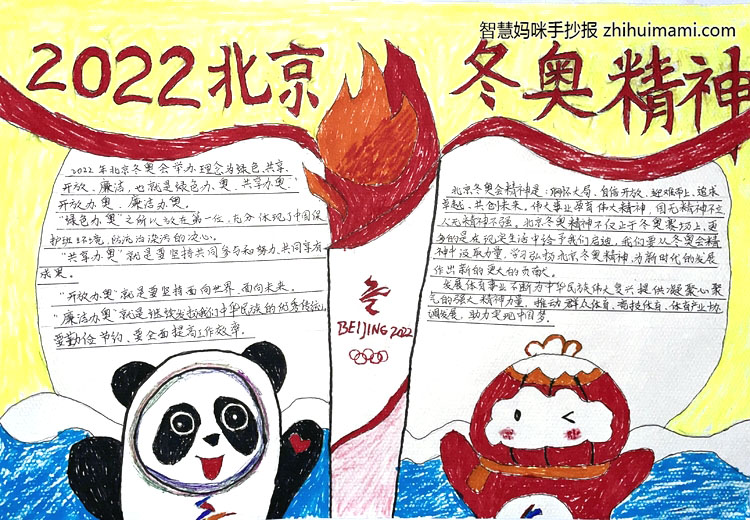 智慧妈咪手抄报 zhihuimami.com
2022北京
冬奥精神
2022年北京冬奥会举办理念为绿色、共享、
开放、廉洁,也就是绿色办奥、共享办奥、
开放办奥、廉洁办奥。
"绿色办奥"之所以放在第一位,充分体现了中国保
护环境,防治污染的决心。
"共享办奥"就是要坚持共同参与和努力、共同享有
成果。
"开放办奥"就是要坚持面向世界、面向未来。
"廉洁办奥"就是继续发扬我们中华民族的优秀传统,
要勤俭节约,要全面提高工作效率。
北京冬奥会精神是:胸怀大局、自信开放、迎难而上、追求
卓越、共创未来。伟大事业孕育伟大精神,国无精神不立
人无精神不强。北京冬奥精神不仅止于冬奥赛场上,更
多的是在现实生活中给予我们启迪,我们要从冬奥会精
神中汲取力量,学习弘扬北京冬奥精神,为新时代的发展
作出新的更大的贡献。
发展体育事业不断为中华民族伟大复兴提供凝聚心聚
气的强大精神力量,推动群众体育、竞技体育、体育产业协
调发展,助力实现中国梦。
BEIJING 2022